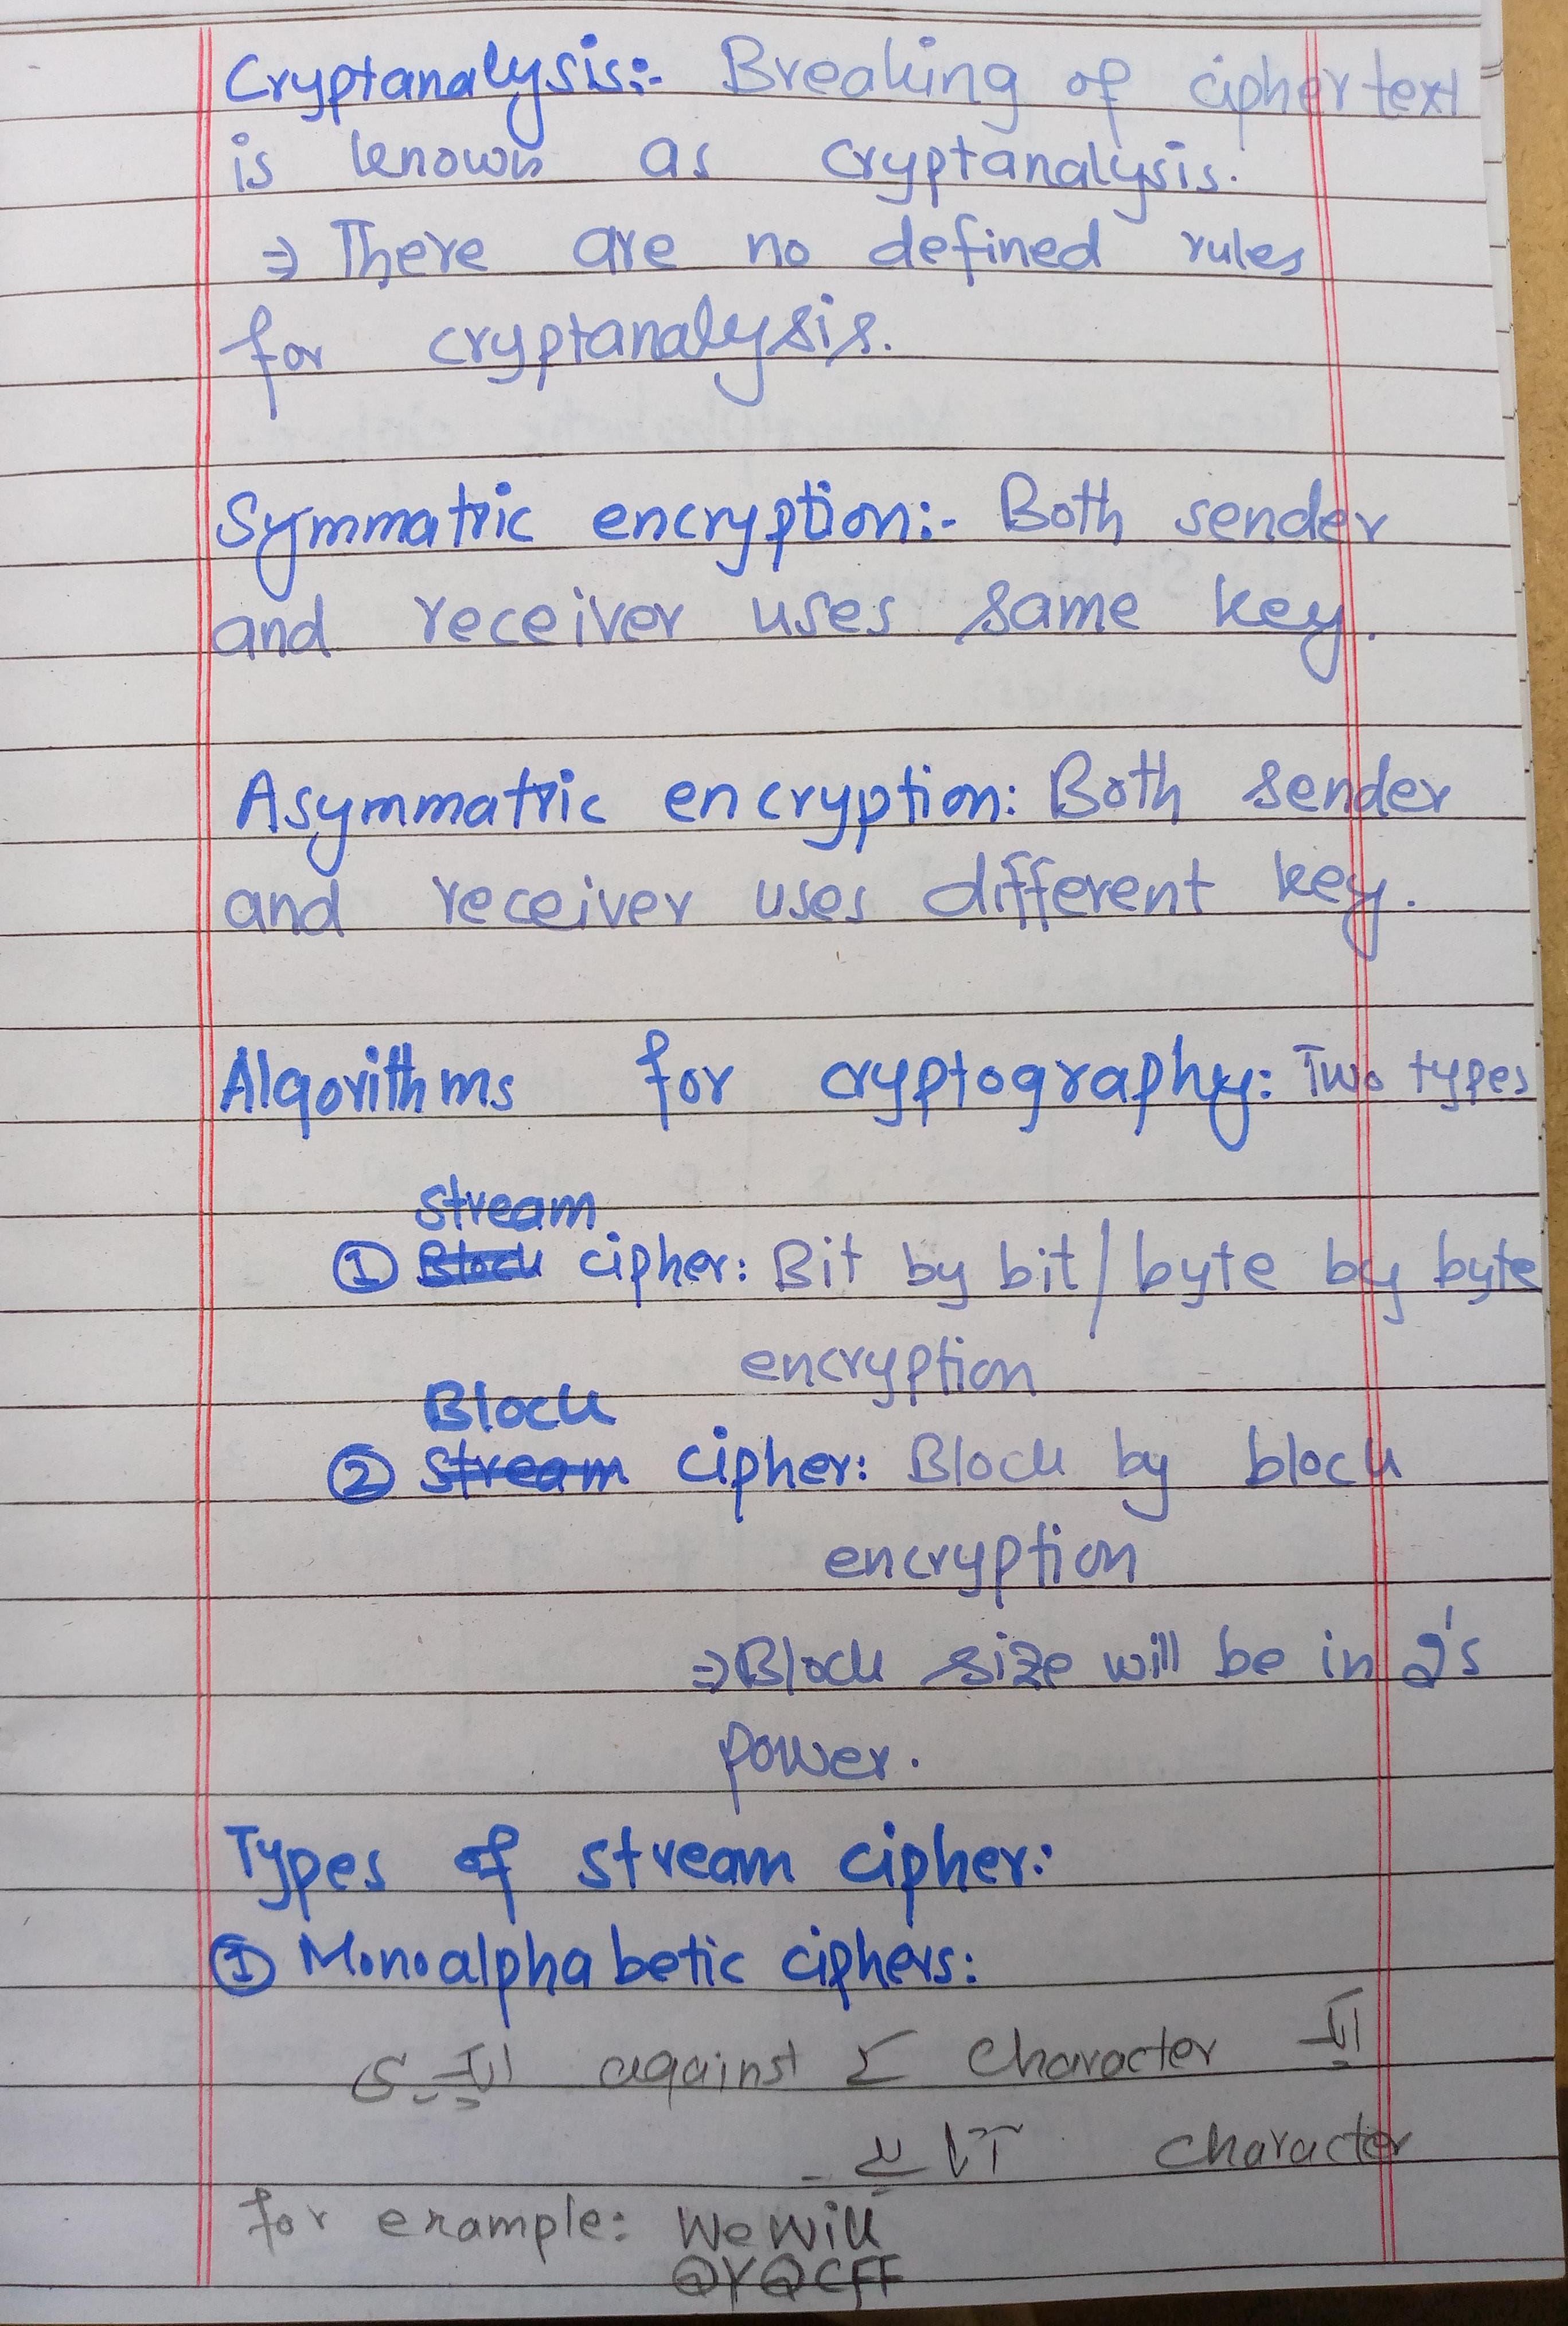 Cryptanalysis:- Breaking of cipher text
is known as cryptanalysis.
⇒ There are no defined rules
for cryptanalysis.
Symmatric encryption:- Both sender
and receiver uses same key.
Asymmatric encryption: Both sender
and receiver uses different key.
Algorithms for cryptography: Two types
Stream
① Block cipher: Bit by bit/byte by byte
encryption
Block
② Stream cipher: Block by block
encryption
⇒ Block size will be in 2's
power.
Types of stream cipher:
① Monoalphabetic ciphers:
ایک character کے against ایک ہی
character آتا ہے۔
for example: We will
@Y@CFF